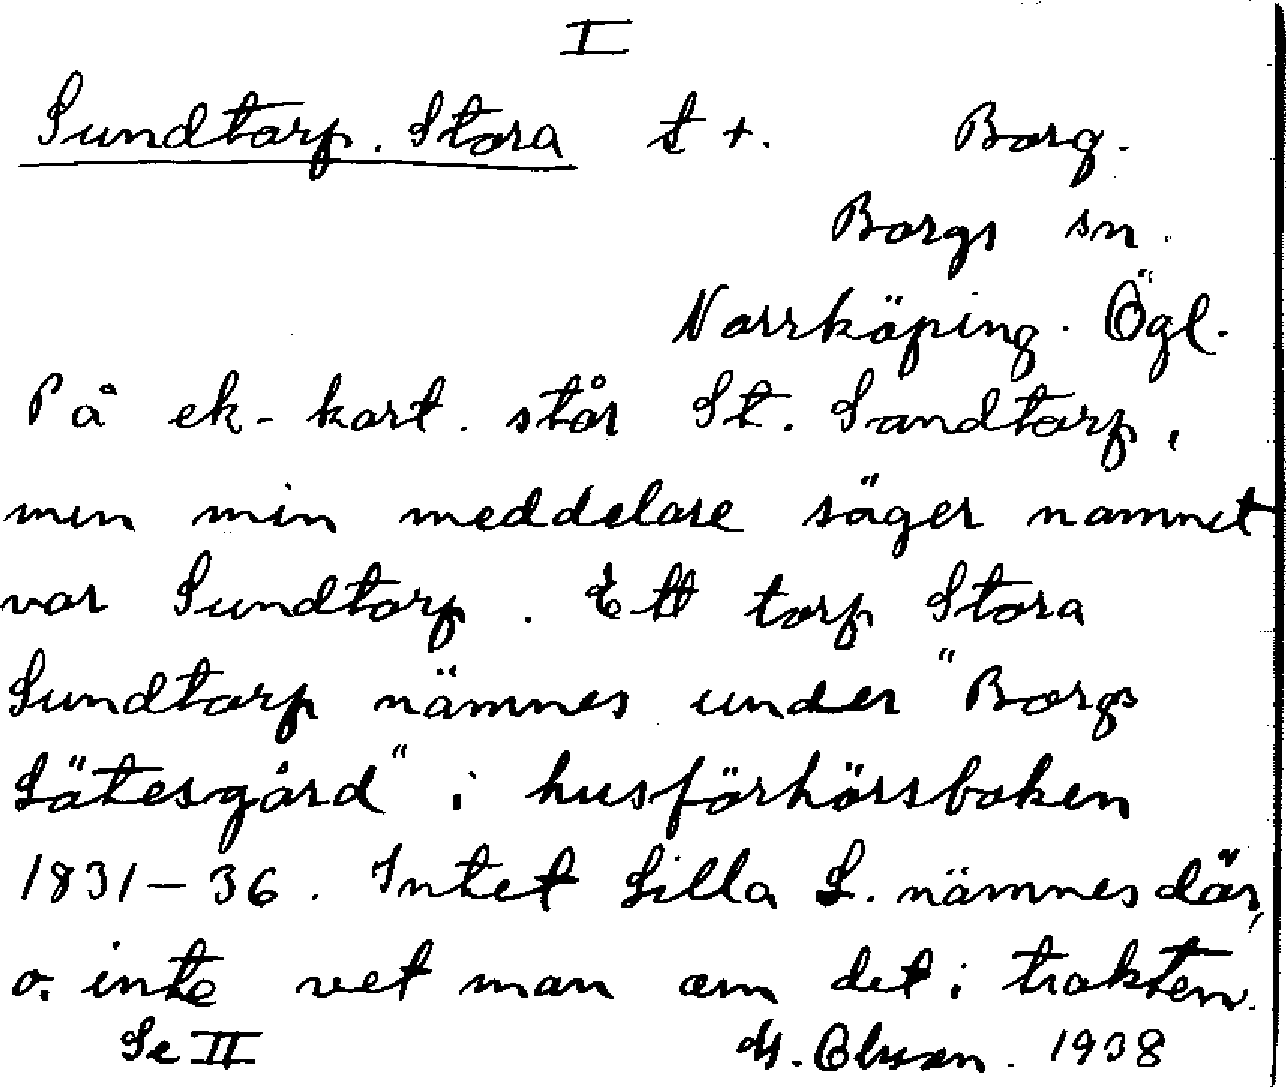 I
Sundtorp. Stora t +. Borg.
Borgs sn.
Norrköping. Ögl.
På ek-kart. står St. Sandtorp,
men min meddelare säger namnet
var Sundtorp. Ett torp Stora
Sundtorp nämnes under "Borgs
Sätesgård" i husförhörsboken
1831-36. Intet Lilla S. nämnes där,
o. inte vet man om det i trakten.
Se II 1938